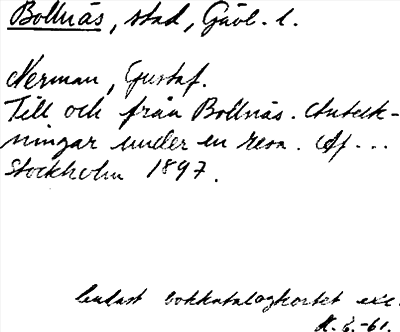 Bollnäs, stad, Gävl. l.
Nerman, Gustaf.
Till och från Bollnäs. Anteck-
ningar under en resa. Af...
Stockholm 1897.
Endast bokkatalogkortet exc.
K. E. -61.